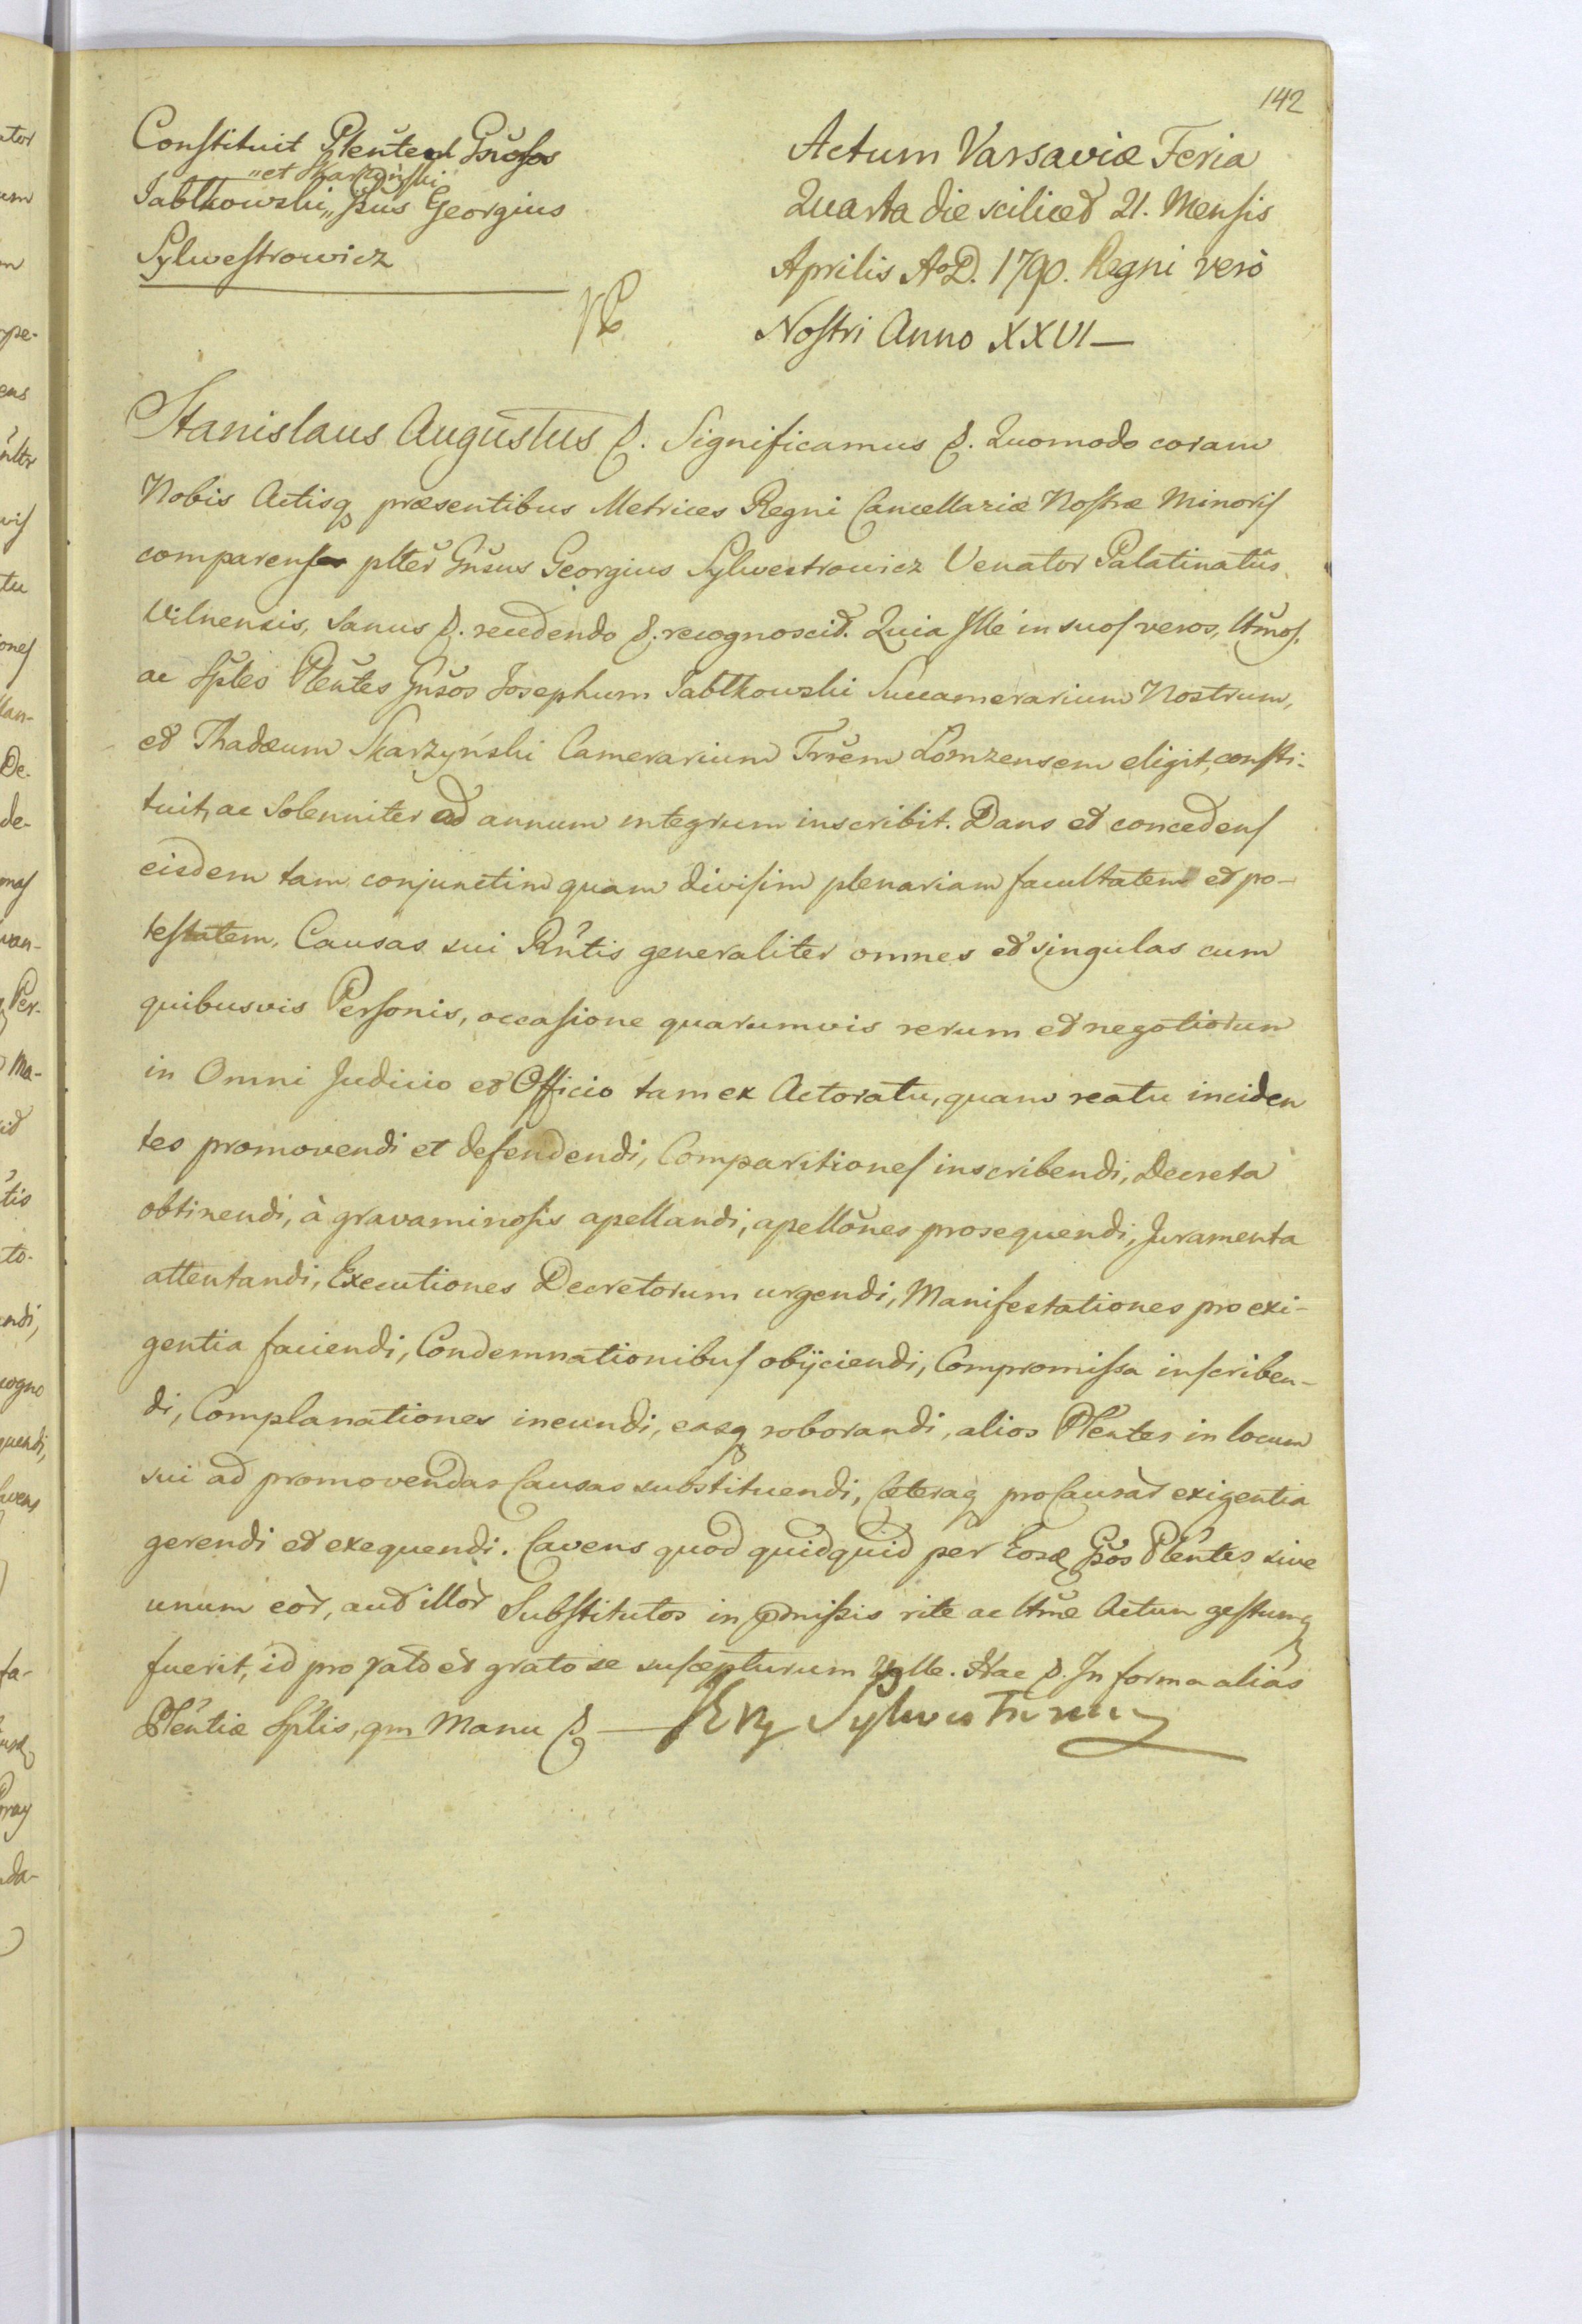 142
Constituit Plentes Gnosos
"et Skarzynski
Jabłkowski,, Gsus Georgius
Sylwestrowicz
Actum Varsaviæ Feria
Quarta die scilicet 21. Mensis
Aprilis A.D. 1790. Regni verò
Nostri Anno XXVI —
Stanislaus Augustus &. Significamus &. Quomodo coram
Nobis Actisq præsentibus Metrices Regni Cancellariæ Nostræ Minoris
comparens plter Gnsus Georgius Sylwestrowicz Venator Palatinatûs
Vilnensis, Sanus &. recedendo &. recognoscit. Quia Ille in suos veros, lttmos,
ac Sples Plentes Gnsos Josephum Jabłkowski Succamerarium Nostrum,
et Thadæum Skarzyński Camerarium Trrem Łomzensem eligit, consti-
tuit, ac Solenniter ad annum integrum inscribit. Dans et concedens
eisdem tam conjunctim quam divisim plenariam facultatem et po-
testatem, Causas sui Rntis generaliter omnes et singulas cum
quibusvis Personis, occasione quarumvis rerum et negotiorum
in Omni Judicio et Officio tam ex Actoratu, quam reatu inciden
tes promovendi et defendendi, Comparitiones inscribendi, Decreta
obtinendi, à gravaminosis apellandi, apellones prosequendi, Juramenta
attentandi, Executiones Decretorum urgendi, Manifestationes pro exi-
gentia faciendi, Condemnationibus obijciendi, Compromissa inscriben-
di, Complanationes ineundi, easq roborandi, alios Plentes in locum
sui ad promovendas Causas substituendi, Cæteraq pro Causar exigentia
gerendi et exequendi. Cavens quod quidquid per Eosd Gsos Plentes sive
unum eor, aut illor Substitutos in pmissis rite ac lttme Actum gestumq
fuerit, id pro rato et grato se suscepturum Velle. Hac &. In forma aliàs
Plentiæ Splis, qm Manu & —